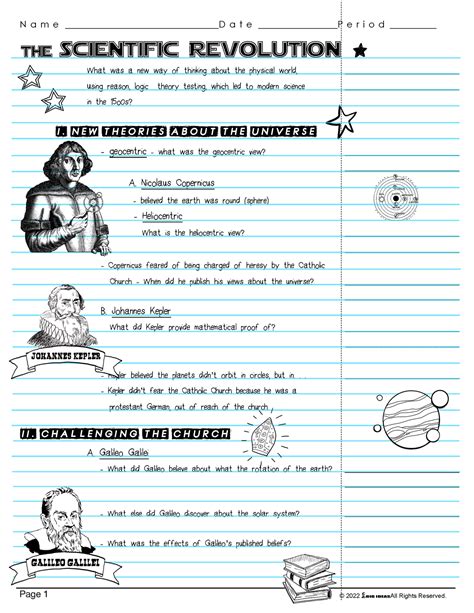 Name Date Period
THE SCIENTIFIC REVOLUTION
What was a new way of thinking about the physical world,
using reason, logic theory testing, which led to modern science
in the 1500s?
I. NEW THEORIES ABOUT THE UNIVERSE
- geocentric - what was the geocentric view?
A. Nicolaus Copernicus
- believed the earth was round (sphere)
- Heliocentric
What is the heliocentric view?
- Copernicus feared of being charged of heresy by the Catholic
Church - When did he publish his views about the universe?
B. Johannes Kepler
What did Kepler provide mathematical proof of?
JOHANNES KEPLER
- Kepler believed the planets didn't orbit in circles, but in . . .
- Kepler didn't fear the Catholic Church because he was a
protestant German, out of reach of the church
II. CHALLENGING THE CHURCH
A. Galileo Galilei
- What did Galileo believe about what the rotation of the earth?
- What else did Galileo discover about the solar system?
- What was the effects of Galileo's published beliefs?
GALILEO GALILEI
Page 1
© 2022 All Rights Reserved.